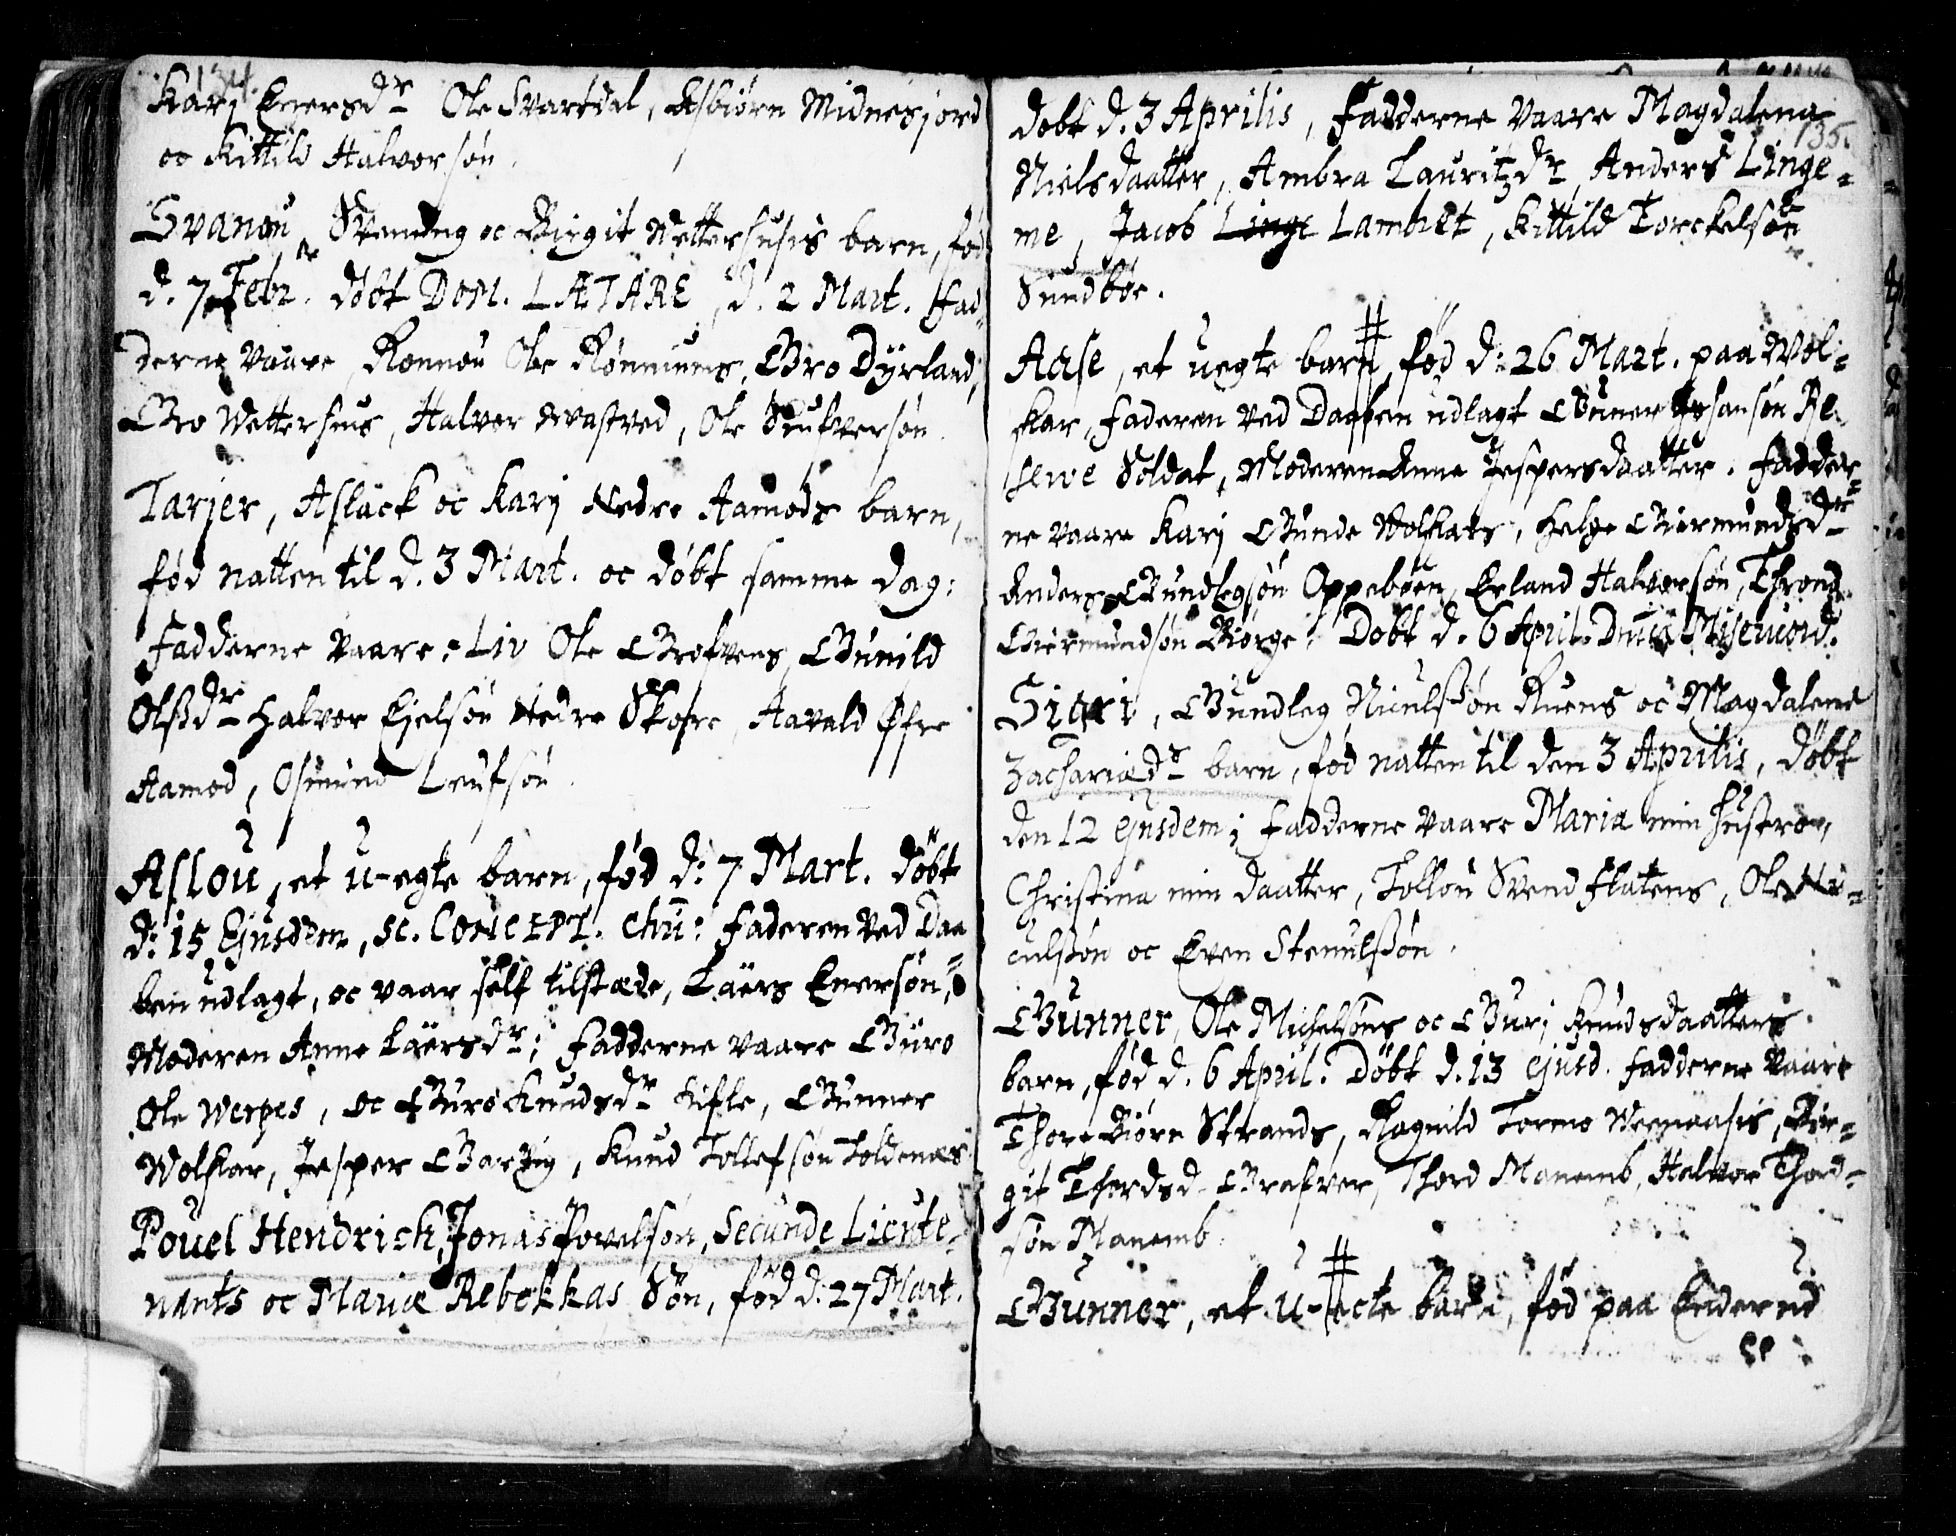 134.
Karj Enersdr Ole Svartdal, Asbiørn Midnesjord
oc Kittild Halvorsøn.
Svanou, Svenung oc Birgit Wetterhusis barn, fød
d. 7 Febr. døbt Dom. LÆTARE, d. 2 Mart. Fad-
derne vaare, Ronnou Ole Rønnings, Gro Dyrland,
Gro Wetterhus, Halvor Qvastved, Ole Siufversøn.
Tarjer, Aslack oc Karj Nedre Aamods barn,
fød natten til d. 3 Mart. oc døbt samme dag:
Fadderne vaare: Liv Ole Grofvens, Gunild
Olßdr Halvor Ejelsøn Nedre Skofre, Aavald Øfre
Aamod, Osmund Leufsøn.
Aslou, et u-egte barn, fød d: 7 Mart. døbt
d: 15 Ejusdem, sc. CONCEPT. Chri: Faderen ved Daa-
ben udlagt, oc vaar self tilstæde, Laers Enersøn,
Moderen Anne Laersdr; Fadderne vaare Guro
Ole Werpes, oc Guro Knudsdr Kifle, Gunner
Wolkar, Jesper Barzig, Knud Tollefsøn Toldenæs
Povel Hendrich, Jonas Povelsøn, Secunde Lieute-
nants oc Mariæ Rebekkas Søn, fød d: 27 Mart.
135.
døbt d. 3 Aprilis, Fadderne vaare Magdalena
Nielsdaatter, Ambra Lauritzdr, Anders Linge-
me, Jacob Linge Lambret, Kittild Torckelsøn
Sundbøe.
Aase, et uegte barn, fød d: 26 Mart. paa Wol-
kar, Faderen ved Daaben udlagt Gunner Johansøn Re-
serve Soldat, Moderen Anne Jespersdaatter. Fadder-
ne vaare Karj Gunde Wolkars, Helge Giermundsdr
Anders Gundlegsøn Oppebøen, Erland Halvorsøn, Thrond
Giermundsøn Biørge. Døbt d. 6 April. Dnica Misericord.
Sigri, Gundleg Niculßøn Ruens oc Magdalene
Zachariædr barn, fød natten til den 3 Aprilis, døbt
den 12 ejusdem; Fadderne vaare Maria min hustroe,
Christina min daatter, Tollou Svend Flatens, Ole Ni-
culßøn oc Even Stenulßøn.
Gunner, Ole Michelsøns oc Gurj Knudsdaatters
barn, fød d. 6 April. Døbt d. 13 ejusd. Fadderne vaare
Thore Biørn Strands, Ragnild Tormo Weenaasis, Bir-
git Thordsd. Grafver, Thord Manemb, Halvor Thord-
søn Manemb.
Gunner, et u-ecte barn, fød paa Enderud